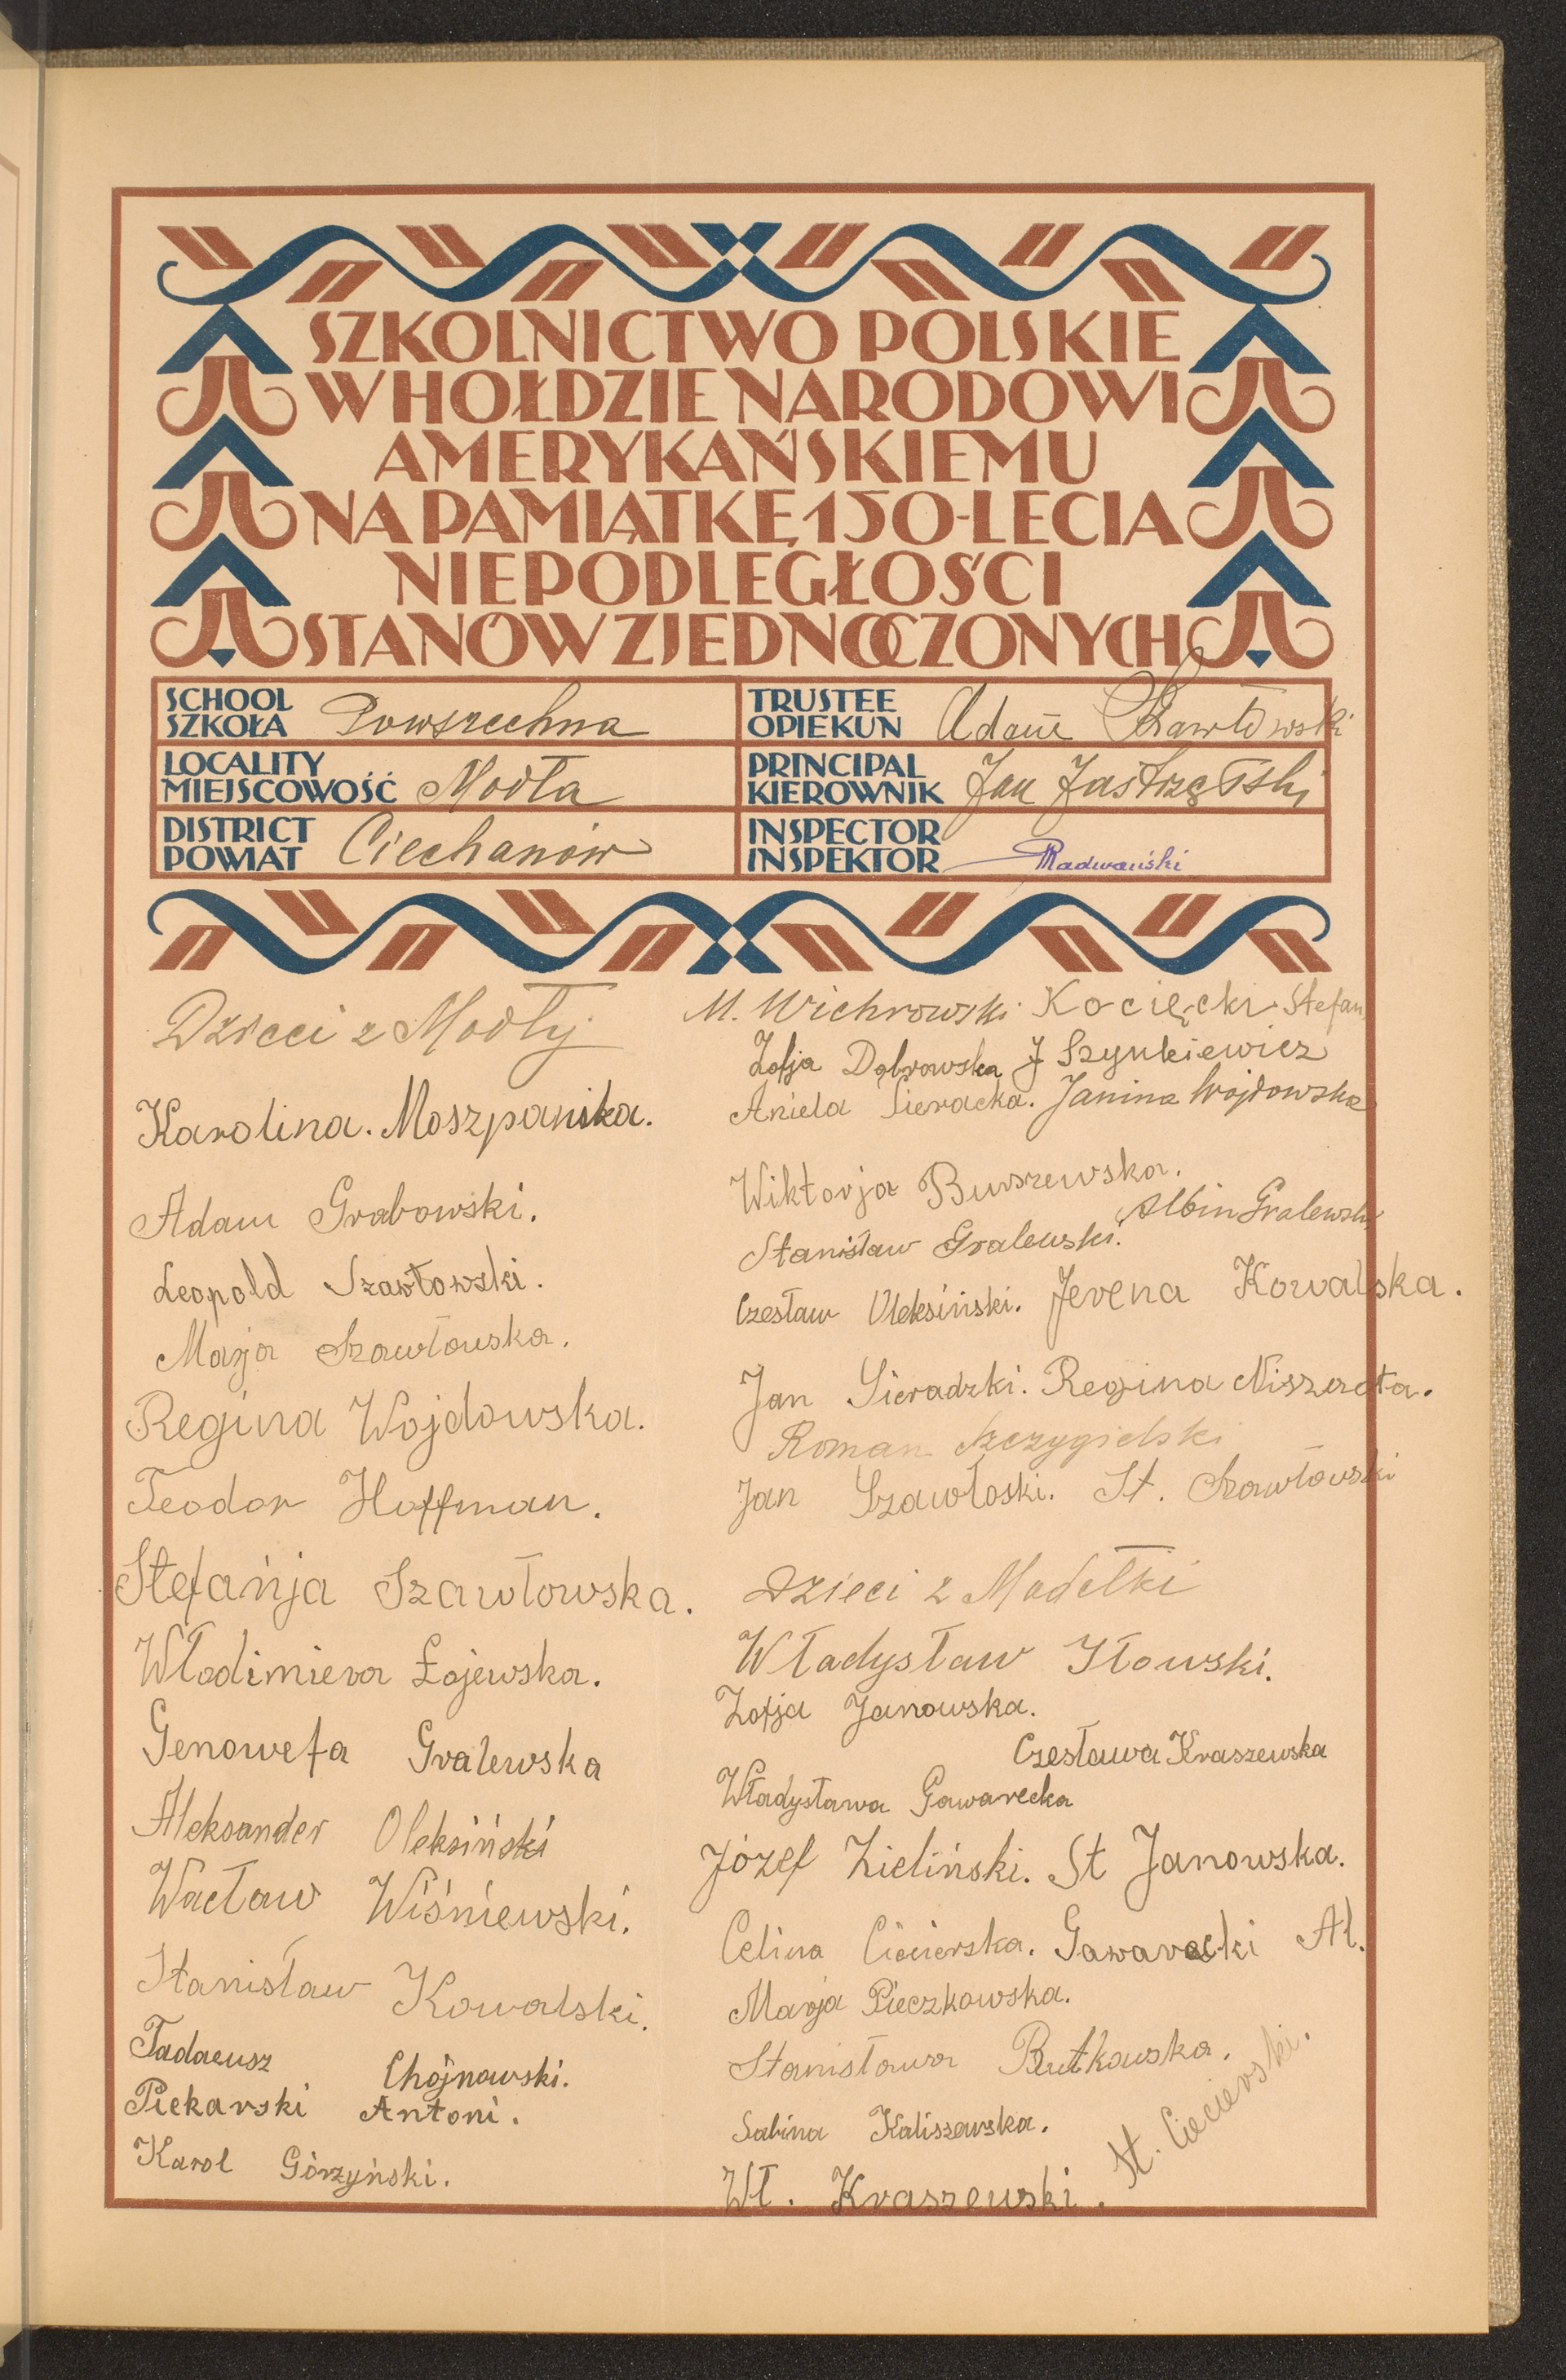 SZKOLNICTWO POLSKIE
W HOŁDZIE NARODOWI
AMERYKAŃSKIEMU
NA PAMIĄTKĘ 150-LECIA
NIEPODLEGŁOŚCI
STANÓW ZJEDNOCZONYCH
SCHOOL
SZKOŁA Powszechna
TRUSTEE
OPIEKUN Adam Szawłowski
LOCALITY
MIEJSCOWOŚĆ Modła
PRINCIPAL
KIEROWNIK Jan Jastrzębski
DISTRICT
POWIAT Ciechanów
INSPECTOR
INSPEKTOR Radwański
Dzieci z Modły
Karolina. Moszpańska.
Adam Grabowski.
Leopold Szawłowski.
Marja Szawłowska.
Regina Wojdowska.
Teodor Hoffman.
Stefańja Szawłowska.
Włodimiera Łojewska.
Genowefa Gralewska
Aleksander Oleksiński
Wacław Wiśniewski.
Stanisław Kowalski.
Tadaeusz Chojnowski.
Piekarski Antoni.
Karol Górzyński.
M. Wichrowski Kocięcki Stefan
Zofja Dąbrowska J Szynkiewicz
Aniela Sieracka. Janina Wojdowska
Wiktorja Burszewska.
Stanisław Gralewski. Albin Gralewski
Czesław Oleksiński. Jerena Kowalska.
Jan Sieradzki. Regina Niszczota.
Roman Szczygielski
Jan Szawłoski. St. Szawłowski
Dzieci z Modełki
Władysław Iłowski.
Zofja Janowska.
Czesława Kraszewska
Władysława Gawarecka
Józef Zieliński. St Janowska.
Celina Ciecierska. Gawarecki Al.
Marja Pieczkowska.
Stanisława Rutkowska.
Sabina Kaliszewska.
Wł. Kraszewski.
St. Ciecierski.